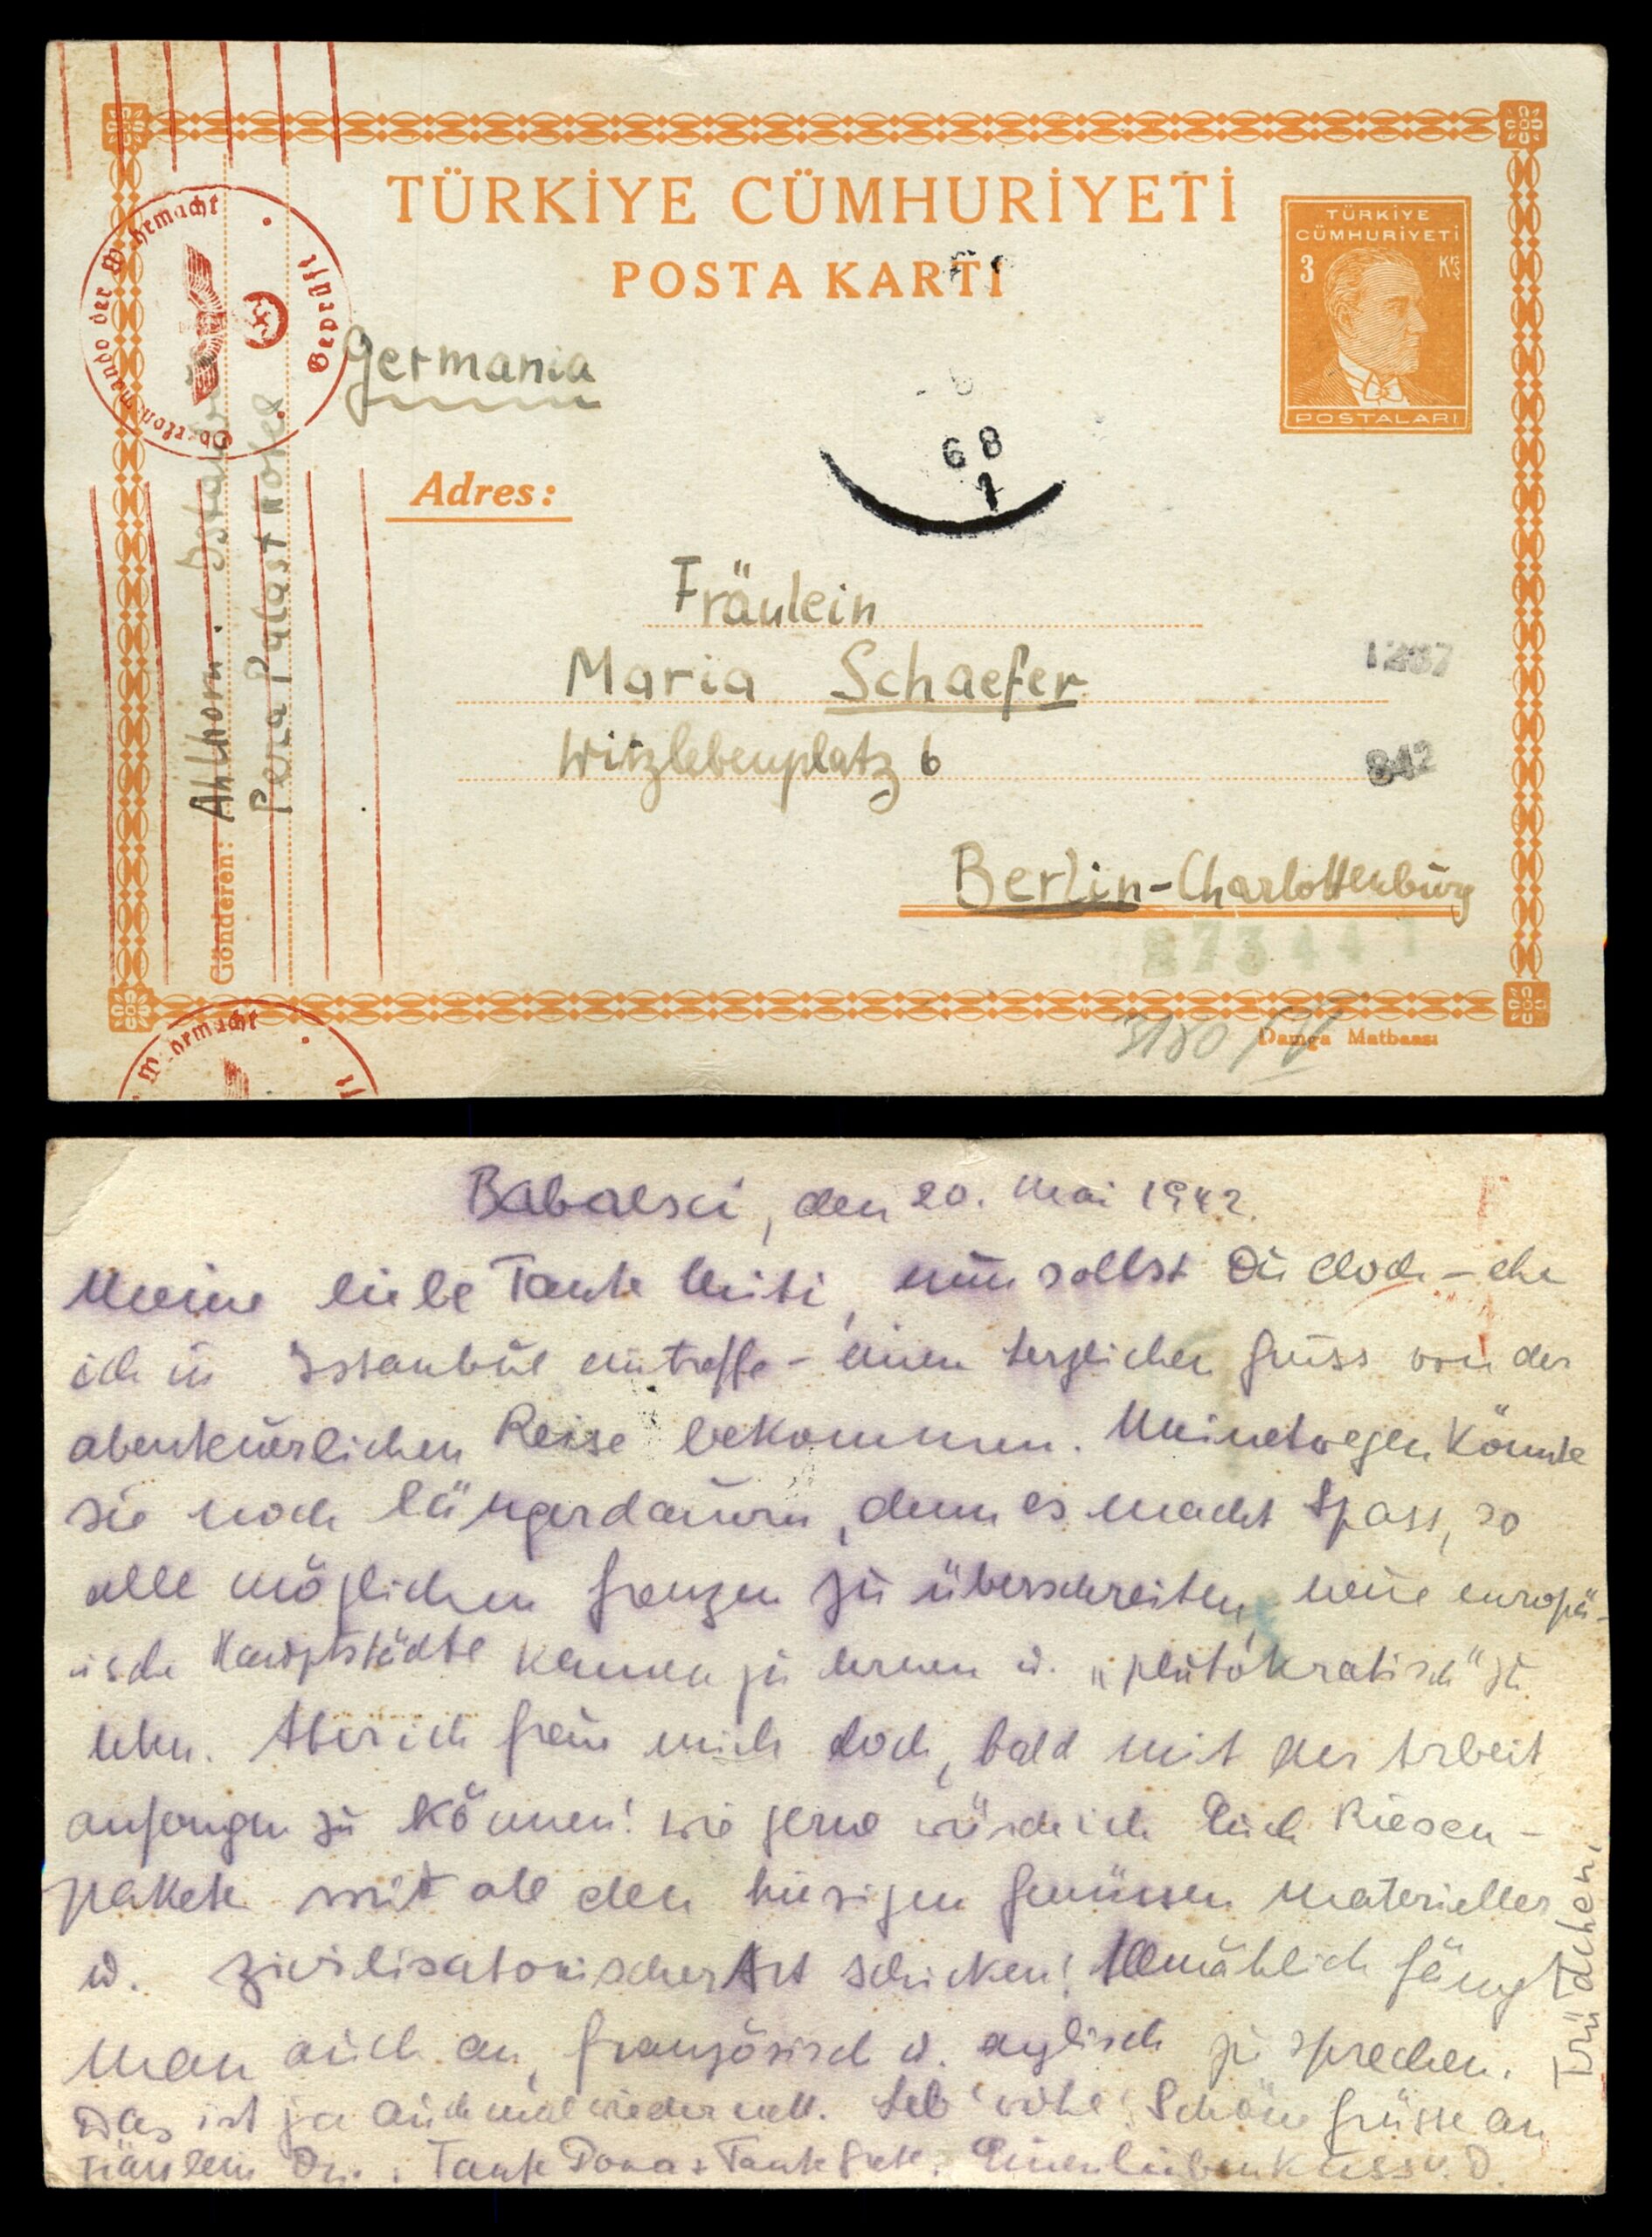 TÜRKİYE CÜMHURİYETİ
POSTA KARTI
TÜRKİYE
CÜMHURİYETİ
3 Krş
POSTALARI
Oberkommando der Wehrmacht
Geprüft
Germania
Adres:
68
1
Fräulein
Maria Schaefer
Witzlebenplatz 6
Berlin-Charlottenburg
1287
842
273441
3180
Damga Matbaası
Gönderen: Ahlhorn. Istanbul
Pera Palast Hotel
Wehrmacht
Babaesci, den 20. Mai 1942.
Meine liebe Tante Miti, nun sollst Du doch – ehe
ich in Istanbul eintreffe – einen herzlichen Gruss von der
abenteuerlichen Reise bekommen. Meinetwegen könnte
sie noch länger dauern, denn es macht Spass, so
alle möglichen Grenzen zu überschreiten, neue europä-
ische Hauptstädte kennen zu lernen u. „plutokratisch“ zu
leben. Aber ich freue mich doch, bald mit der Arbeit
anfangen zu können! Wie gerne würde ich Euch Riesen-
pakete mit all den hiesigen Genüssen materieller
u. zivilisatorischer Art schicken! Allmählich fängt
man auch an, französisch u. englisch zu sprechen.
Das ist ja auch mal wieder nett. Leb' wohl! Schöne Grüsse an
Fräulein Dr., Tante Dora + Tante Grete. Einen lieben Kuss v. D.
Trüdchen.